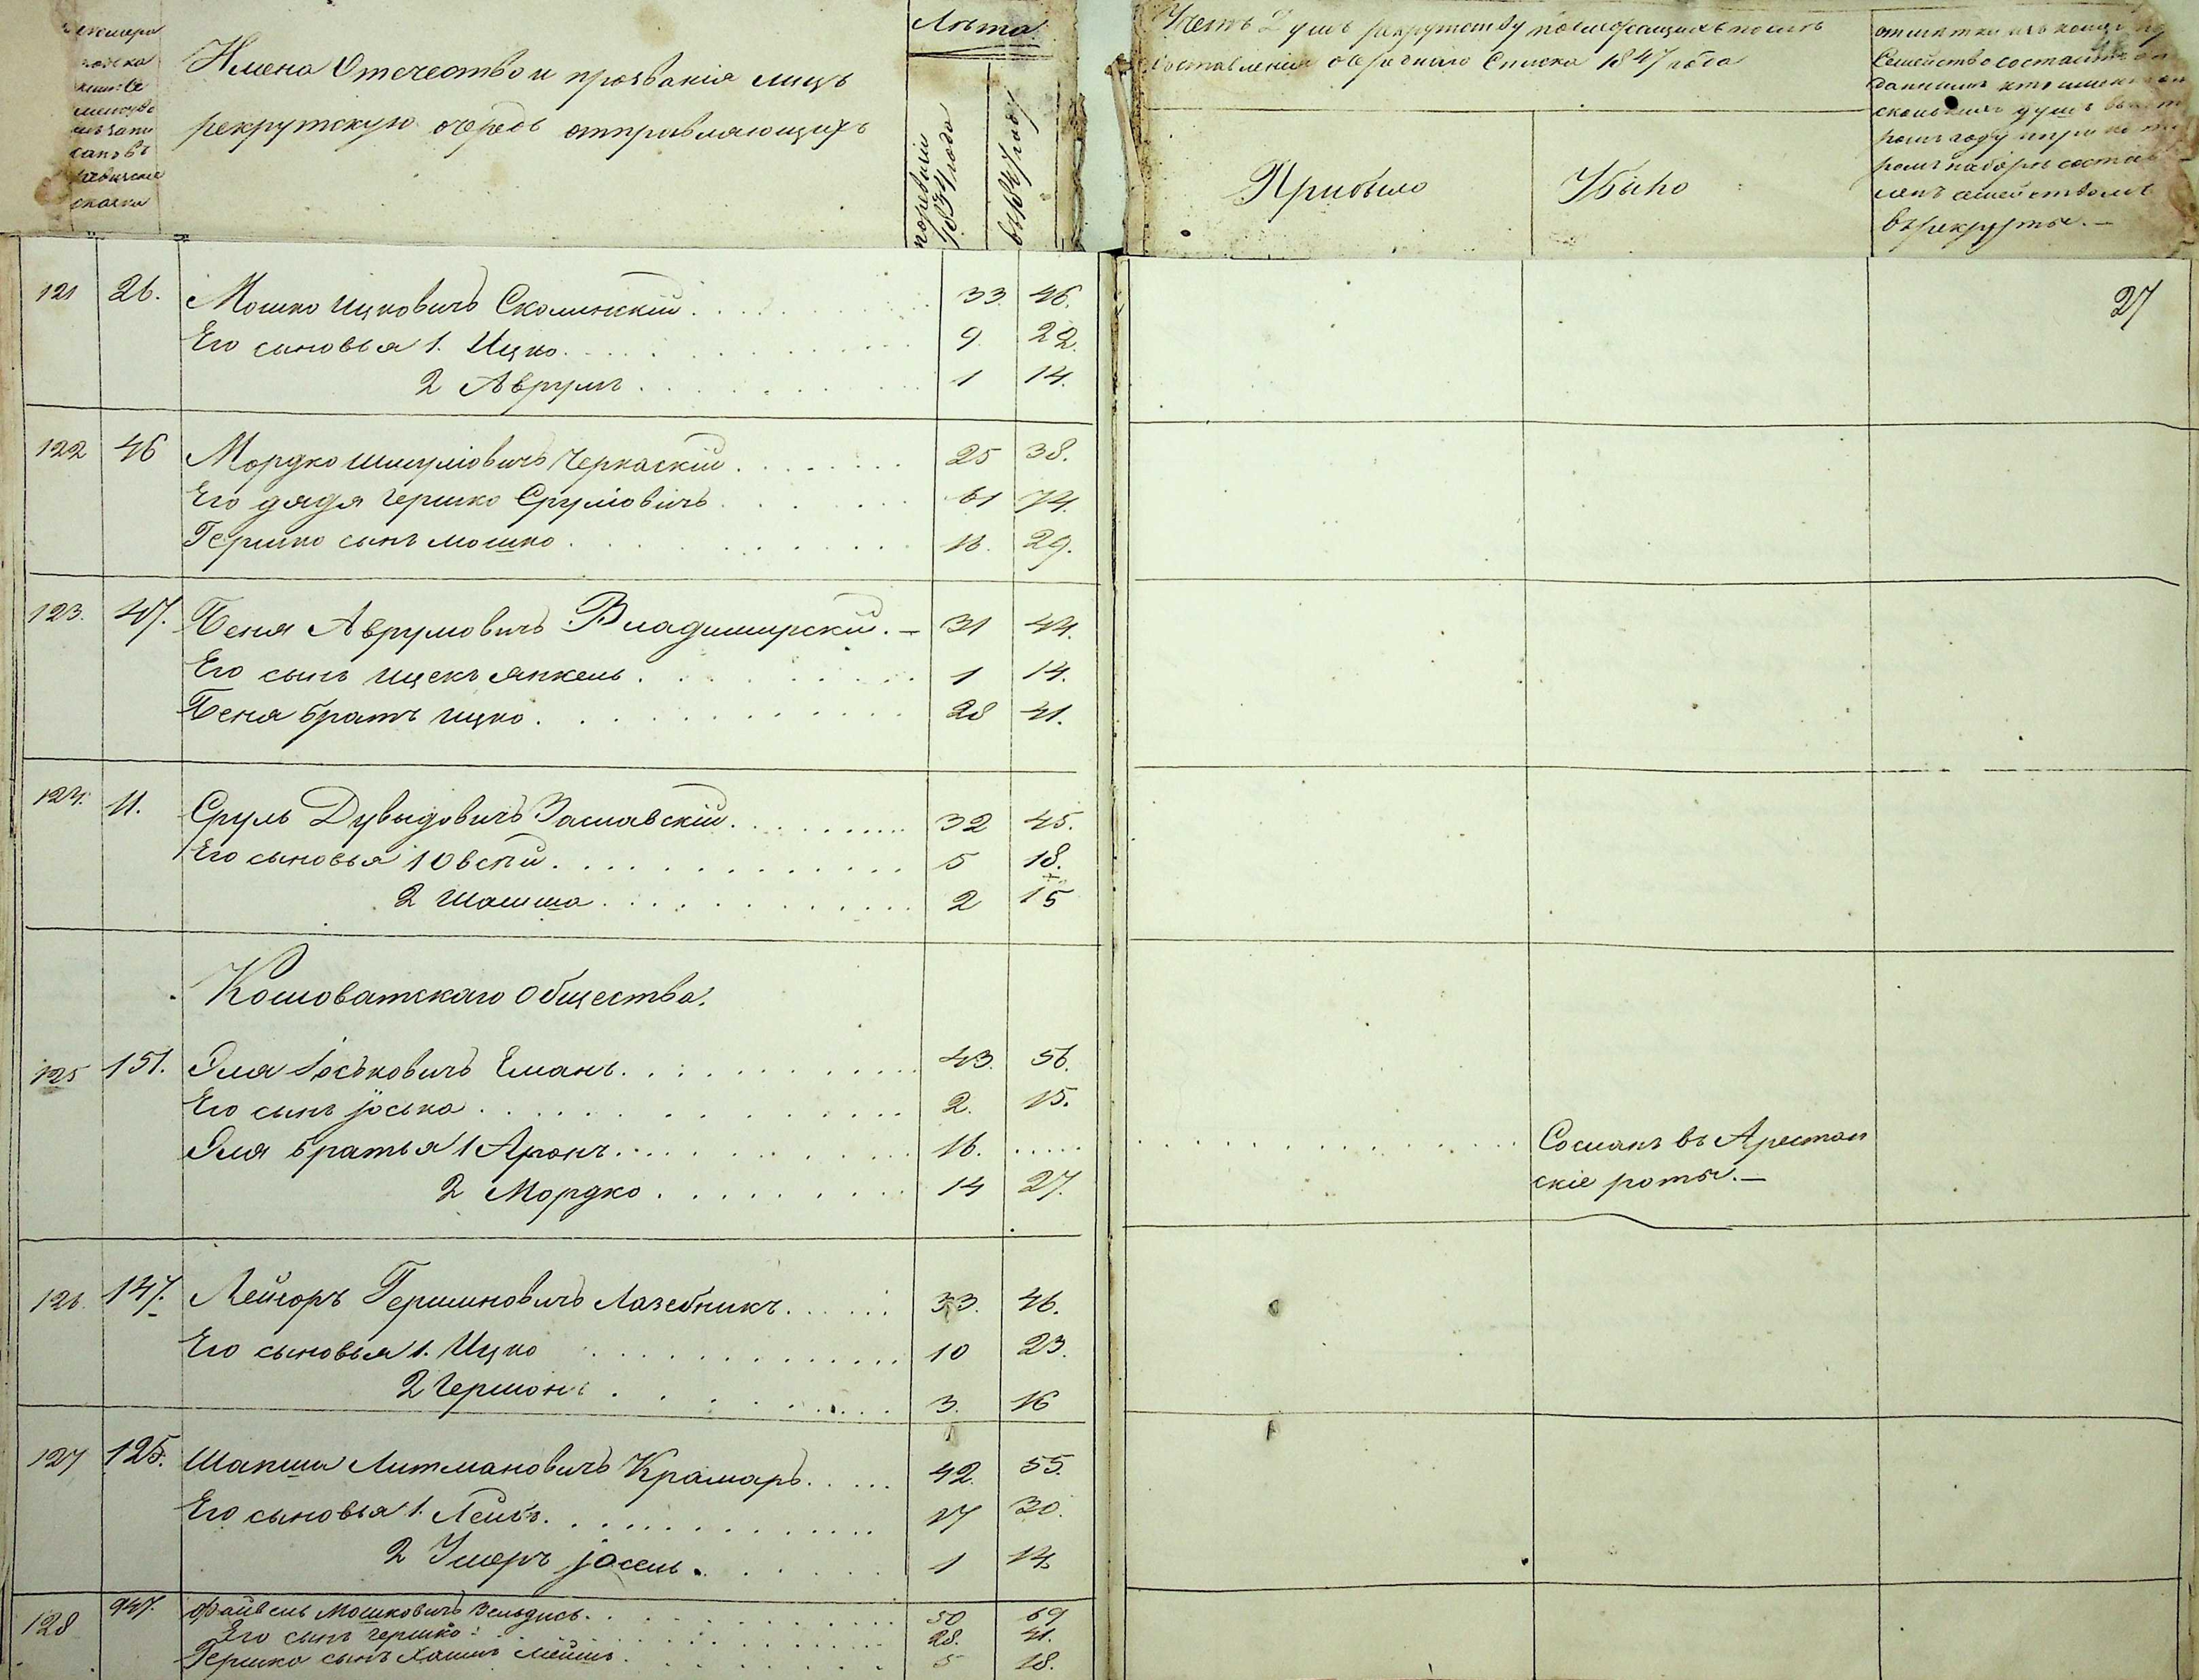 Имена Отечество и прозванія лицъ
рекрутскую очередь отправляющихъ
Лѣта
по ревизіи 1834 года
въ 1847 году
Счетъ Душъ рекрутству подлежащихъ послѣ
составленія очереднаго Списка 1847 года
Прибыло
Убыло
въ рекруты. —
27
121 26. Мошко Ицковичъ Сколинскій 33. 46.
Его сыновья 1. Ицко 9. 22.
2 Аврумъ 1 14.
122 46 Мордко Шмуліовичъ Черкаскій 25 38.
Его дядя Гершко Сруліовичъ 61 74.
Гершко сынъ Мошко 16. 29.
123. 47. Беня Аврумовичъ Владимирскій. — 31 44.
Его сынъ Ицекъ Янкель 1 14.
Беня братъ Ицко 28 41.
124. 11. Сруль Дувыдовичъ Заславскій 32 45.
Его сыновья 1 Овсій 5 18.
2 Шапша 2 15
Кошоватскаго Общества.
125 151. Эля Іоськовичъ Елманъ 43. 56.
Его сынъ Іоська 2. 15.
Эля братья 1 Аронъ 16. Сосланъ въ Арестан
2 Мордко 14 27. скіе роты. —
126. 147. Лейзоръ Гершковичъ Лазебникъ 33. 46.
Его сыновья 1. Ицко 10 23.
2 Гершонъ 3. 16
127 125. Шапша Литмановичъ Крамаръ 42. 55.
Его сыновья 1. Лейбъ 17 30.
2 Умеръ Іосель 1 14
128 947. Файвель Мошковичъ Зельдисъ 50 69
Его сынъ Гершко 28. 41.
Гершка сынъ Хаимъ 5 18.